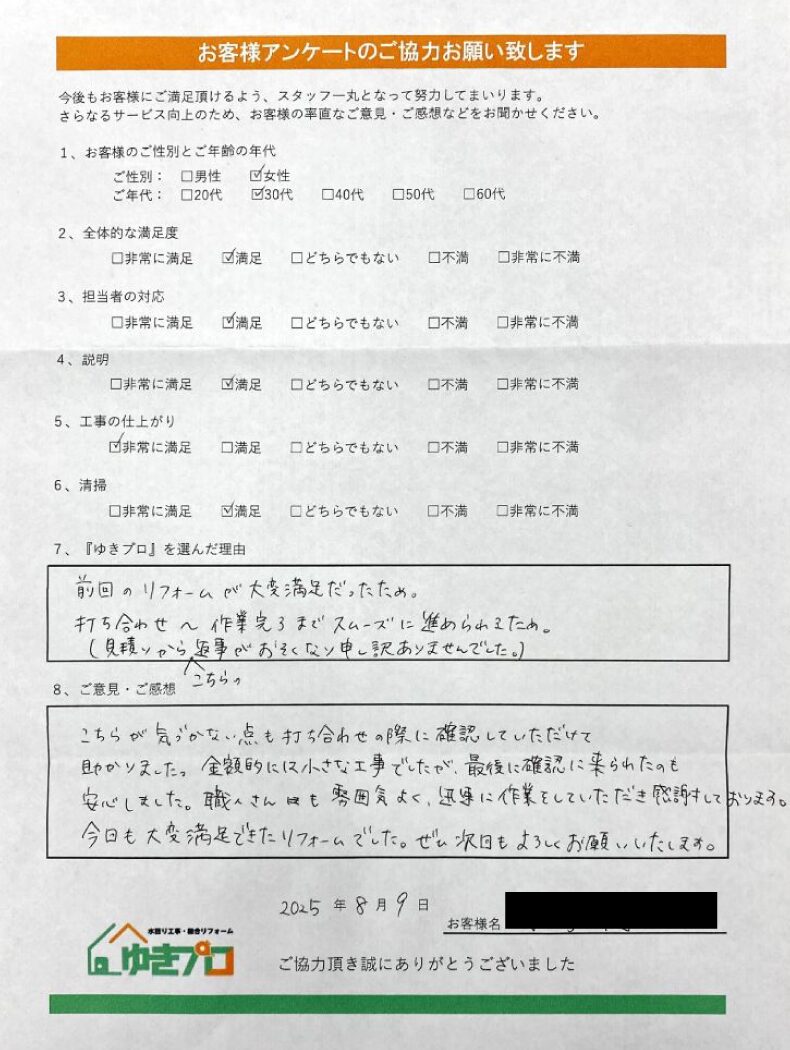 お客様アンケートのご協力お願い致します
今後もお客様にご満足頂けるよう、スタッフ一丸となって努力してまいります。
さらなるサービス向上のため、お客様の率直なご意見・ご感想などをお聞かせください。
1、お客様のご性別とご年齢の年代
ご性別： □男性 ☑女性
ご年代： □20代 ☑30代 □40代 □50代 □60代
2、全体的な満足度
□非常に満足 ☑満足 □どちらでもない □不満 □非常に不満
3、担当者の対応
□非常に満足 ☑満足 □どちらでもない □不満 □非常に不満
4、説明
□非常に満足 ☑満足 □どちらでもない □不満 □非常に不満
5、工事の仕上がり
☑非常に満足 □満足 □どちらでもない □不満 □非常に不満
6、清掃
□非常に満足 ☑満足 □どちらでもない □不満 □非常に不満
7、『ゆきプロ』を選んだ理由
前回のリフォームが大変満足だったため。
打ち合わせ〜作業完了までスムーズに進められるため。
(見積りから返事がおそくなり申し訳ありませんでした。)
こちらの
8、ご意見・ご感想
こちらが気づかない点も打ち合わせの際に確認していただけて
助かりました。金額的には小さな工事でしたが、最後に確認に来られたのも
安心しました。職人さんも雰囲気よく、迅速に作業をしていただき感謝しております。
今回も大変満足できたリフォームでした。ぜひ次回もよろしくお願いいたします。
2025 年 8 月 9 日
お客様名
水回り工事・総合リフォーム
ゆきプロ
ご協力頂き誠にありがとうございました